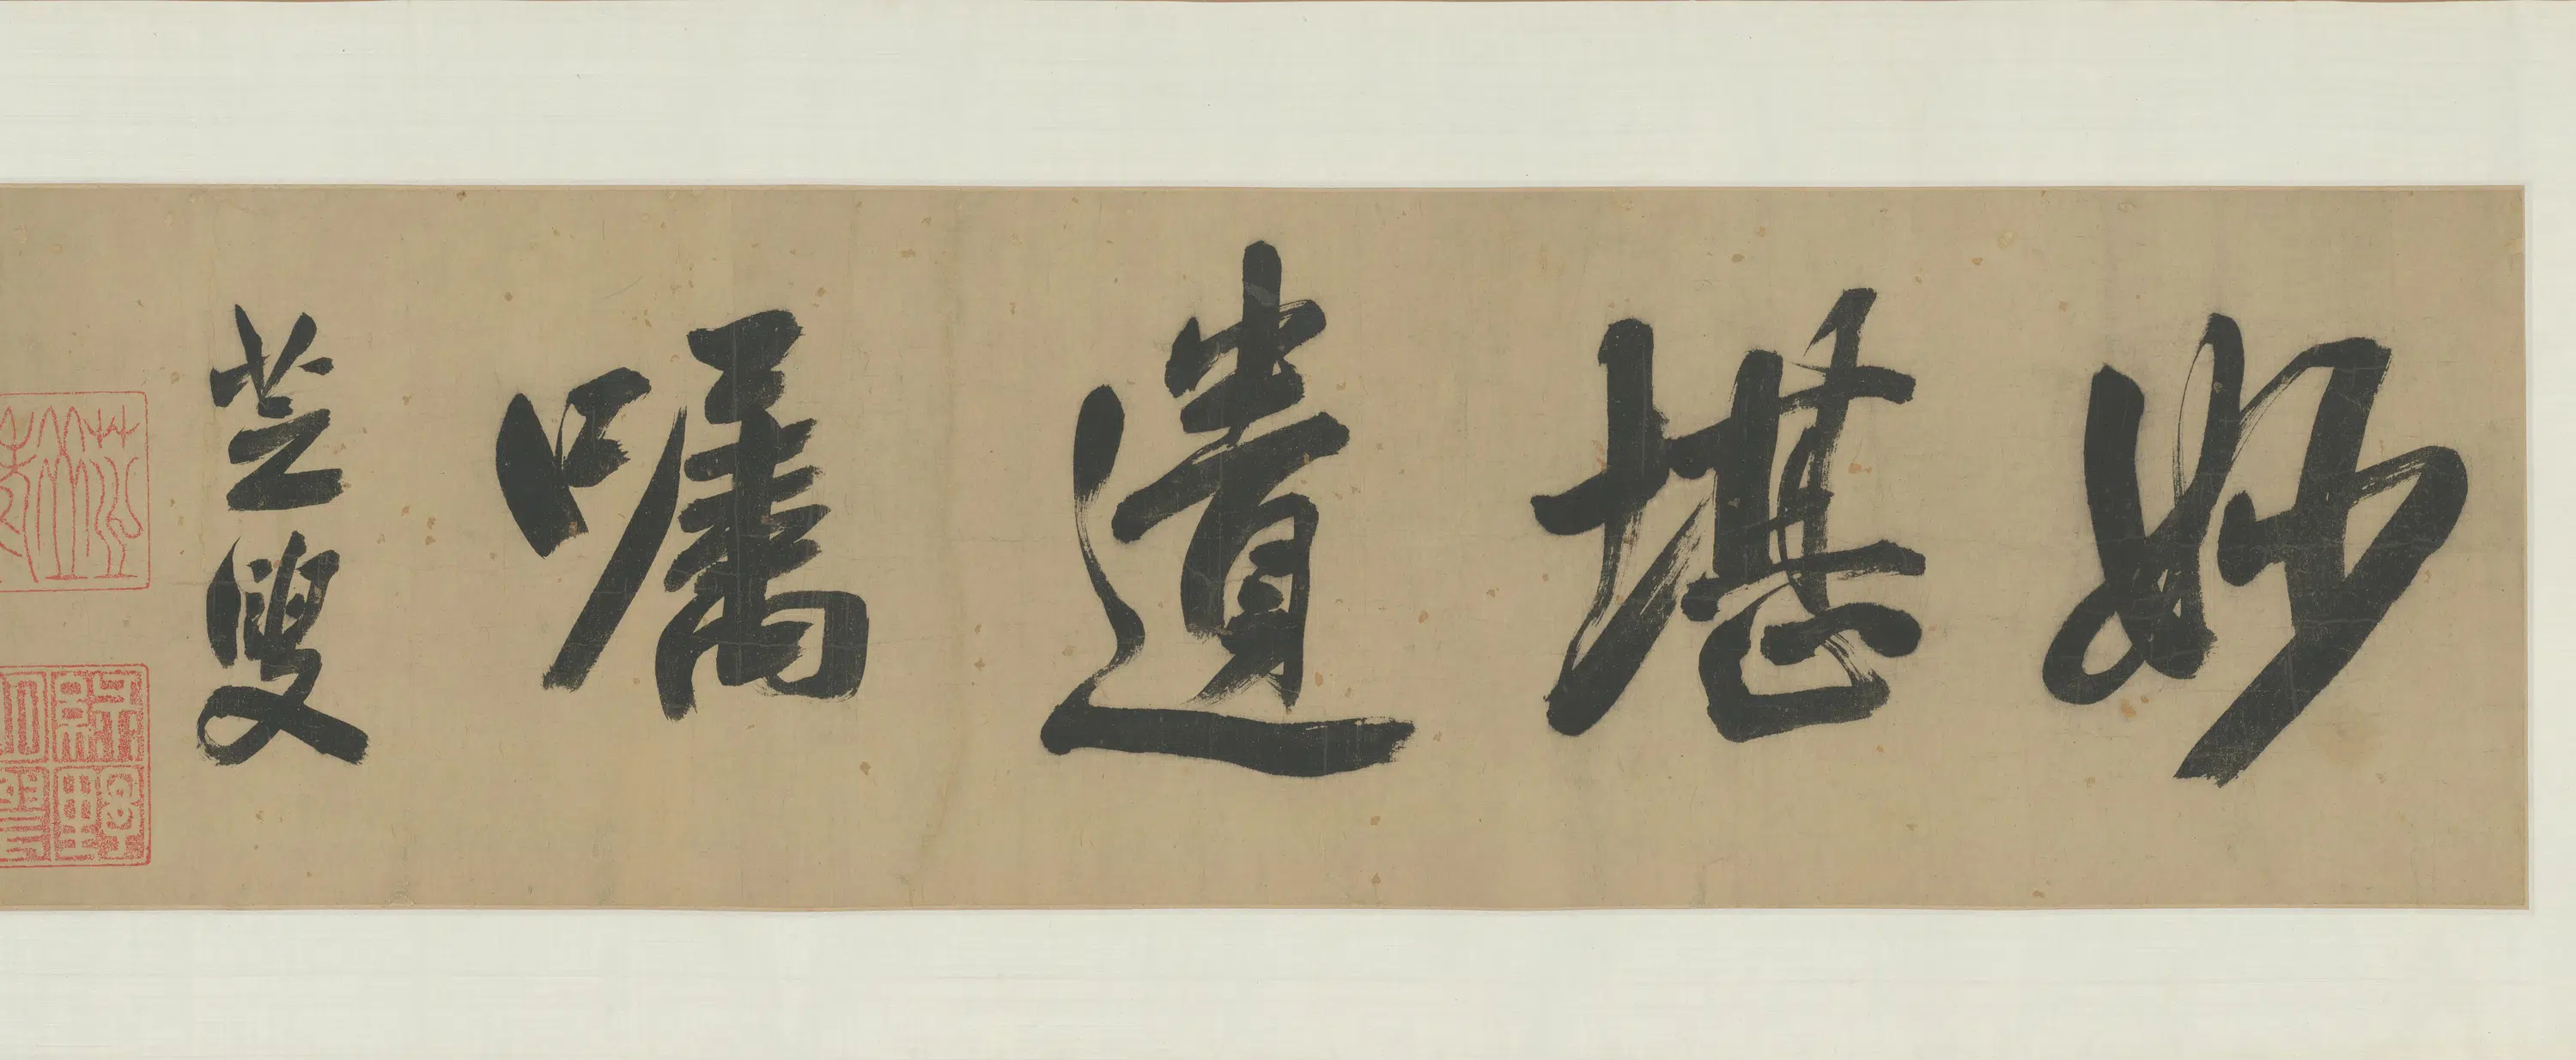 妙堪遺囑
芝叟